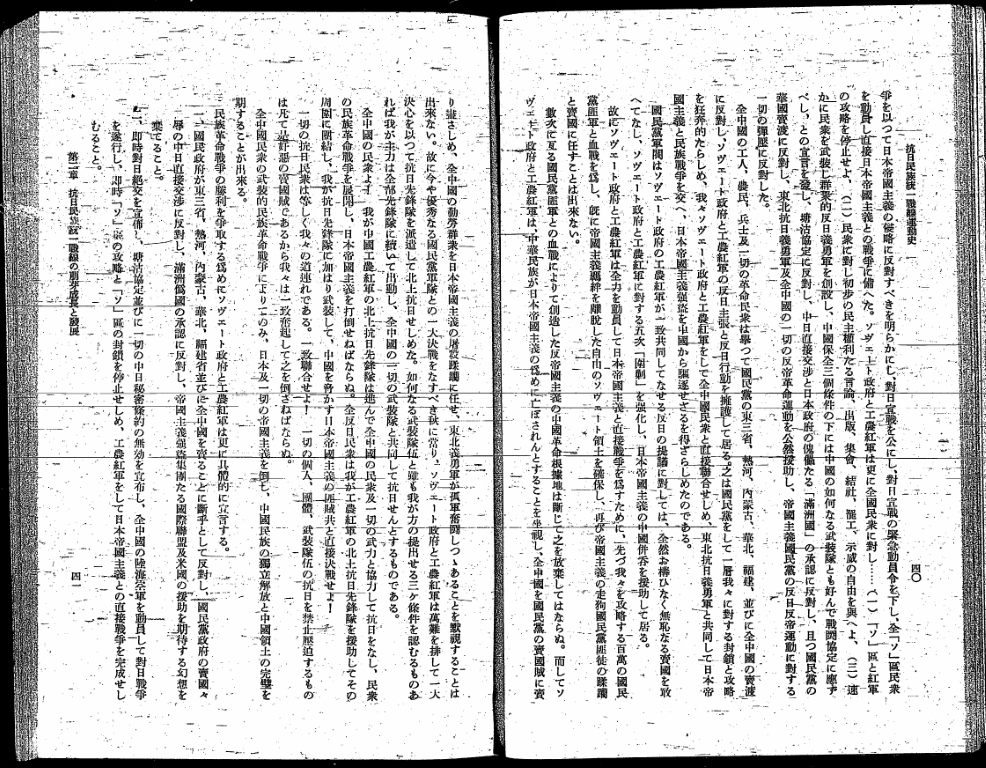 抗日民族統一戰線運動史
四〇
爭を以つて日本帝國主義の侵略に反對すべきを明らかにし、對日宣戰を公にし、對日宣戰の緊急動員令を下し、全「ソ」區民衆
を動員し直接日本帝國主義との戰爭に備へた。ソヴェート政府と工農紅軍は更に全國民衆に對し……(一)、「ソ」區と紅軍
の攻略を停止せよ、(二)、民衆に對し初步の民主權利たる言論、出版、集會、結社、罷工、示威の自由を與へよ、(三)速
かに民衆を武裝し群衆的反日義勇軍を創設し、中國保全三個條件の下には中國の如何なる武裝隊とも好んで戰鬪協定に應ず
べし、との宣言を發し、塘沽協定に反對し、中日直接交涉と日本政府の傀儡たる「滿洲國」の承認に反對し、且つ國民黨の
華國賣渡に反對し、東北抗日義勇軍及全中國の一切の反帝革命運動を公然援助し、帝國主義國民黨の反日反帝運動に對する
一切の彈壓に反對した。
全中國の工人、農民、兵士及一切の革命民衆は擧つて國民黨の東三省、熱河、內蒙古、華北、福建、並びに全中國の賣渡
に反對し、ソヴェート政府と工農紅軍の反日主張と反日行動を擁護して居る。之は國民黨をして一層我々に對する封鎖と攻略
を狂奔的たらしめ、我々ソヴェート政府と工農紅軍をして全中國民衆と直接聯合せしめ、東北抗日義勇軍と共同して日本帝
國主義と民族戰爭を交へ、日本帝國主義强盜を中國から驅逐せざるを得ざらしめたのである。
國民黨軍閥はソヴェート政府の工農紅軍が一致共同してなせる反日の提議に對しては、全然お構ひなく無恥なる賣國を敢
へてなし、ソヴェート政府と工農紅軍に對する五次「圍剿」を强化し、日本帝國主義の中國併吞を援助して居る。
故にソヴェート政府と工農紅軍は全力を動員して日本帝國主義と直接戰爭を爲すために、先づ我々を攻略する百萬の國民
黨匪軍と血戰を爲し、旣に帝國主義羈絆を離脫した自由のソヴェート領土を確保し、再び帝國主義の走狗國民黨匪徒の蹂躪
と賣國に任すことは出來ない。
數次に亙る國民黨匪軍との血戰によりて創造した反帝國主義の中國革命根據地は斷じて之を放棄してはならぬ。而してソ
ヴェート政府と工農紅軍は、中華民族が日本帝國主義の爲めに亡ぼされんとすることを坐視し、全中國を國民黨の賣國賊に賣
り盡さしめ、全中國の勤勞群衆を日本帝國主義の屠殺蹂躪に任せ、東北義勇軍が孤軍奮鬪しつゝあることを默視することは
出來ない。故に今や優秀なる國民黨軍隊との一大決戰をなすべき秋に當り、ソヴェート政府と工農紅軍は萬難を排して一大
決心を以つて抗日先鋒隊を派遣して北上抗日せしめた。如何なる武裝隊伍と雖も我が方の提出せる三ヶ條件を認むるものあ
れば我が主力は全部先鋒隊に續いて出動し、全中國の一切の武裝隊と共同して抗日せんとするものである。
全中國の民衆よ! 我が中國工農紅軍の北上抗日先鋒隊は進んで全中國の民衆及一切の武力と協力して抗日をなし、民衆
の民族革命戰爭を展開し、日本帝國主義を打倒せねばならぬ。全反日民衆は我が工農紅軍の北上抗日先鋒隊を援助してその
周圍に團結し、我が抗日先鋒隊に加はり武裝して、中國を脅かす日本帝國主義の匪賊共と直接決戰せよ!
一切の抗日民衆は等しく我々の道連れである。一致聯合せよ! 一切の個人、團體、武裝隊伍の抗日を禁止壓迫するもの
は凡て是れ奸惡の賣國賊であるから我々は一致奮起して之を倒さねばならぬ。
全中國民衆の武裝的民族革命戰爭によりてのみ、日本及一切の帝國主義を倒し、中國民族の獨立解放と中國領土の完整を
期することが出來る。
民族革命戰爭の勝利を爭取する爲めにソヴェート政府と工農紅軍は更に具體的に宣言する。
一、國民政府が東三省、熱河、內蒙古、華北、福建省並びに全中國を賣ることに斷乎として反對し、國民黨政府の賣國々
辱の中日直接交涉に反對し、滿洲僞國の承認に反對し、帝國主義强盜集團たる國際聯盟及米國の援助を期待する幻想を
棄てること。
二、卽時對日絕交を宣佈し、塘沽協定並びに一切の中日秘密條約の無効を宣布し、全中國の陸海空軍を動員して對日戰爭
を遂行し、卽時「ソ」區の攻略と「ソ」區の封鎖を停止せしめ、工農紅軍をして日本帝國主義との直接戰爭を完成せし
むること。
第二章 抗日民族統一戰線の萌芽成長と發展
四一